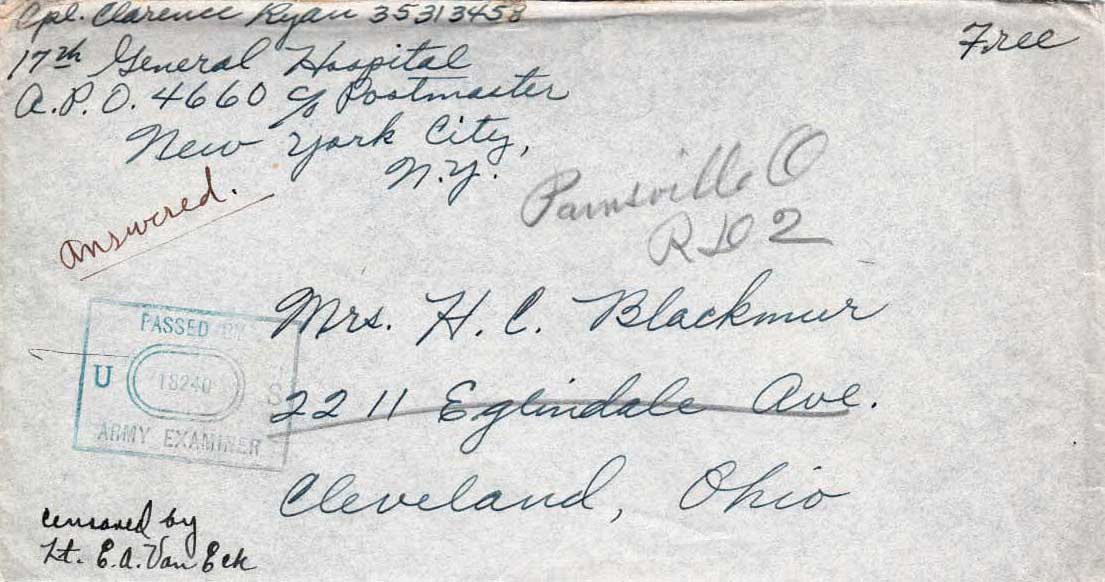 Cpl. Clarence Ryan 35313458
17th General Hospital
A.P.O. 4660 c/o Postmaster
New York City,
N.Y.
Free
answered.
Painsville O
RD 2
PASSED BY
U 18240 S
ARMY EXAMINER
Mrs. H. C. Blackmur
2211 Eglindale Ave.
Cleveland, Ohio
censored by
Lt. E.A. Van Eck